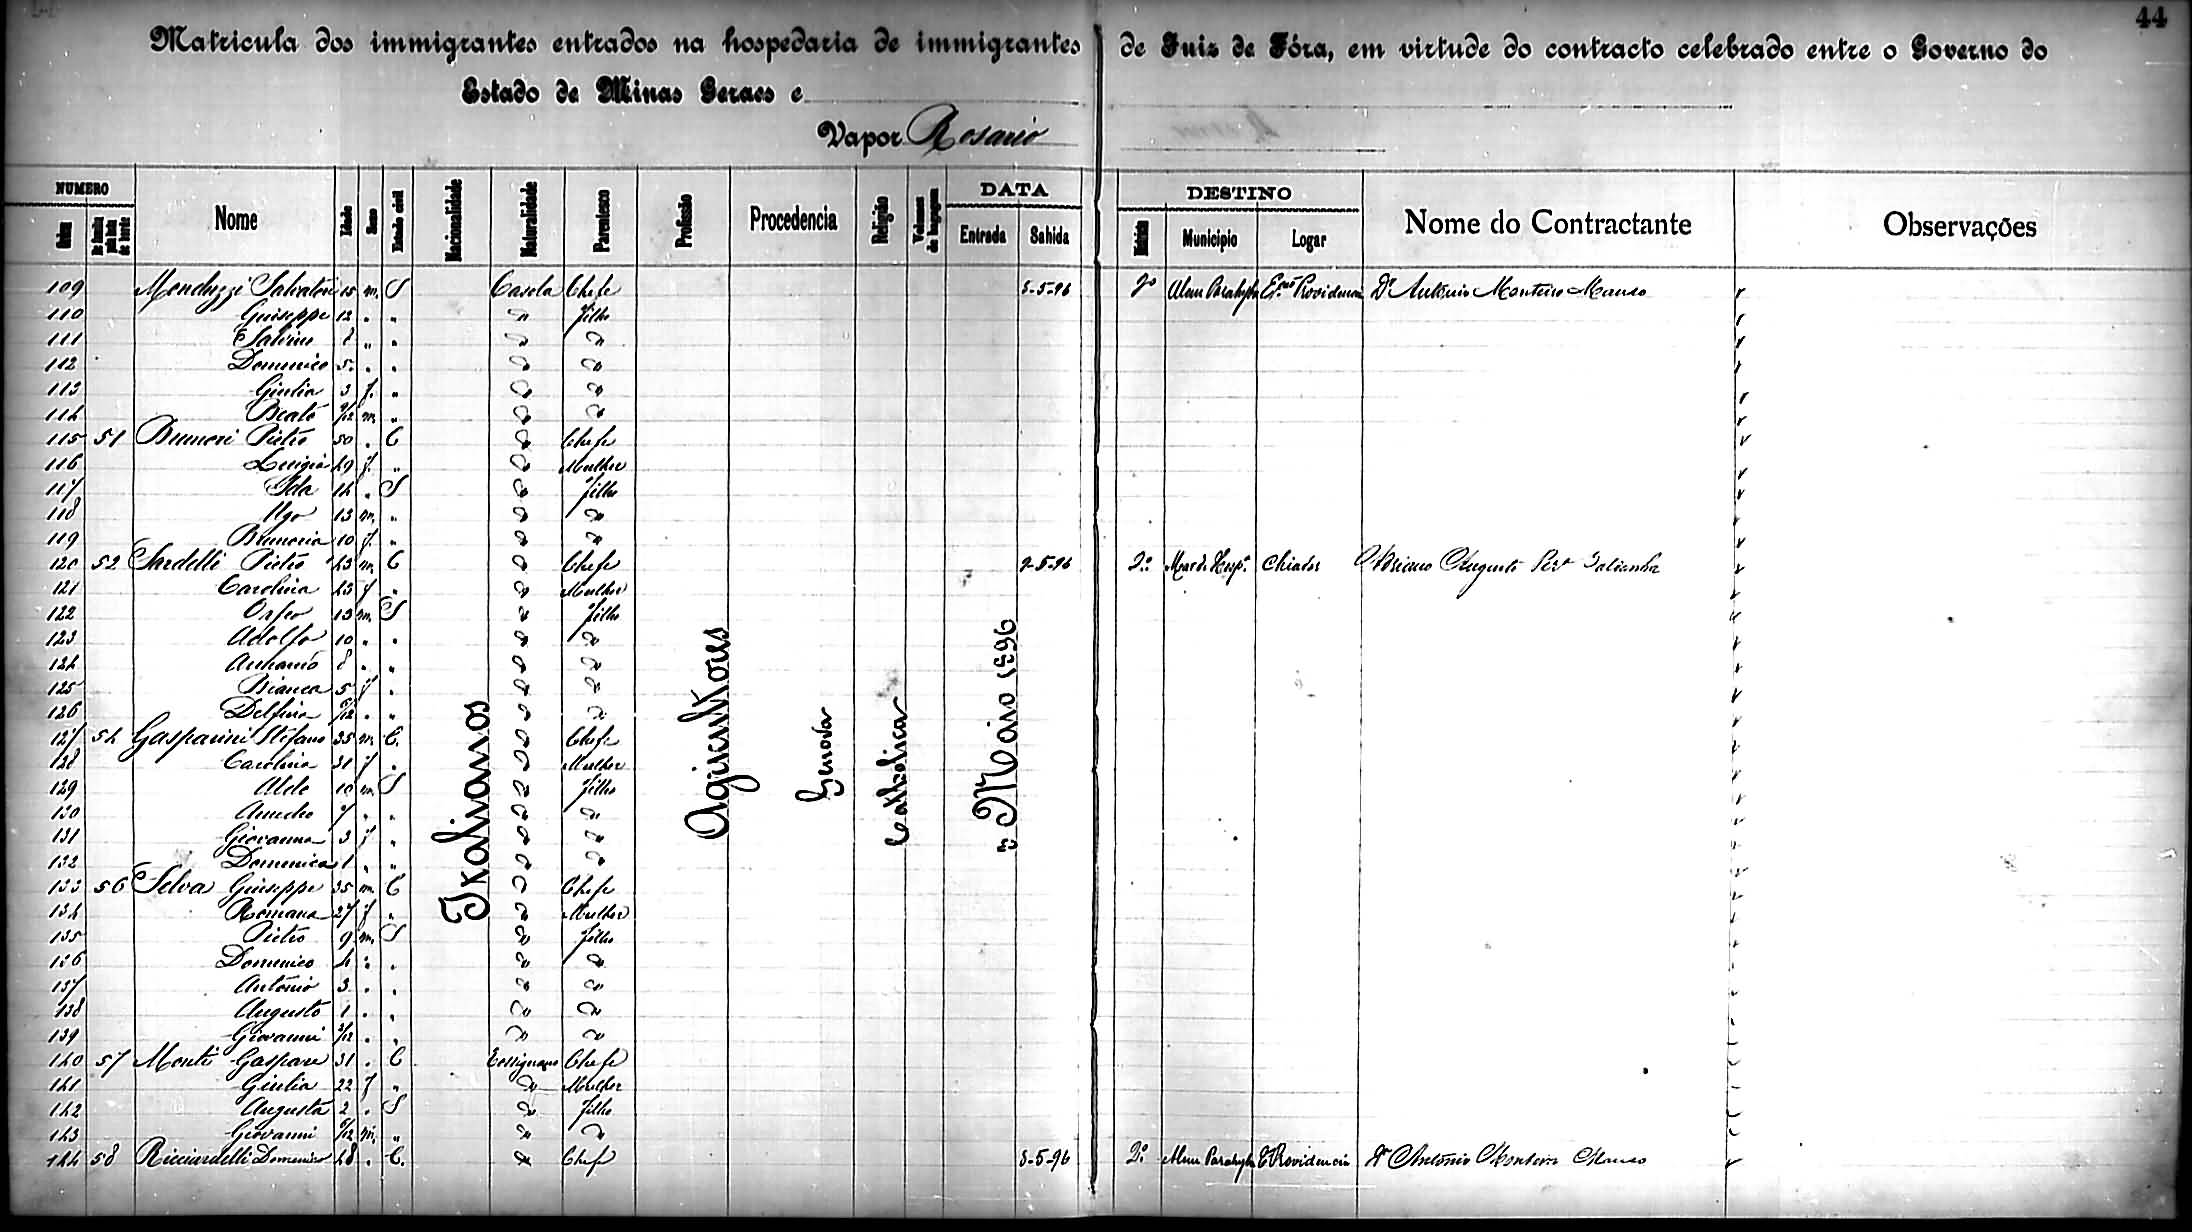 44
Matricula dos immigrantes entrados na hospedaria de immigrantes de Juiz de Fóra, em virtude do contracto celebrado entre o Governo do
Estado de Minas Geraes e
Vapor Rosario
NUMERO Nome Idade Sexo Estado civil Nacionalidade Naturalidade Parentesco Profissão Procedencia Religião Volumes de bagagem DATA DESTINO Nome do Contractante Observações
Ordem Entrada Sahida Municipio Logar
Italianos
Agricultores
Genova
Catholica
3 Maio 1896
109 Menduzzi Salvatore 15 m. S Casola Chefe 5-5-96 Alem Parahyba Providencia Dr Antonio Monteiro Manso
110 Guiseppe 12 . " " filho
111 Salvino 8 " " " "
112 Domenico 5 . . " "
113 Giulia 3 f. " " "
114 Beato m. " " "
115 51 Brunori Pietro 50 . C " Chefe
116 Luigia 49 f. " " Mulher
117 Ida 14 . S " filho
118 Ugo 13 m. " " "
119 10 f. " " "
120 52 Sardelli Pietro 43 m. C " Chefe 9-5-96 2º Mar de Hesp. Chiador Adriano Augusto
121 Carolina 43 f " " Mulher
122 Orfeo 13 m. S " filho
123 Adolfo 10 " . " "
124 Antonio 8 . " " "
125 Bianca 5 f . " "
126 Delfina . " " "
127 54 Gasparini Stefano 35 m. C. " Chefe
128 Carolina 31 f . " Mulher
129 Aldo 10 m. S " filho
130 Amedeo 7 . " " "
131 Giovanna 3 f " " "
132 Domenica 1 . " " "
133 56 Selva Giuseppe 35 m. C " Chefe
134 Romana 27 f " " Mulher
135 Pietro 9 m. S " filho
136 Domenico 4 . . " "
137 Antonio 3 . . " "
138 Augusto 1 . . " "
139 Giovanni 3/12 . " " "
140 57 Monti Gaspare 31 . C Chefe
141 Giulia 22 f " " Mulher
142 Augusta 2 . S " filho
143 Giovanni m. " " "
144 58 Ricciardelli Domenico 48 . C. " Chefe 5-5-96 2º Alem Parahyba Providencia Dr Antonio Monteiro Manso